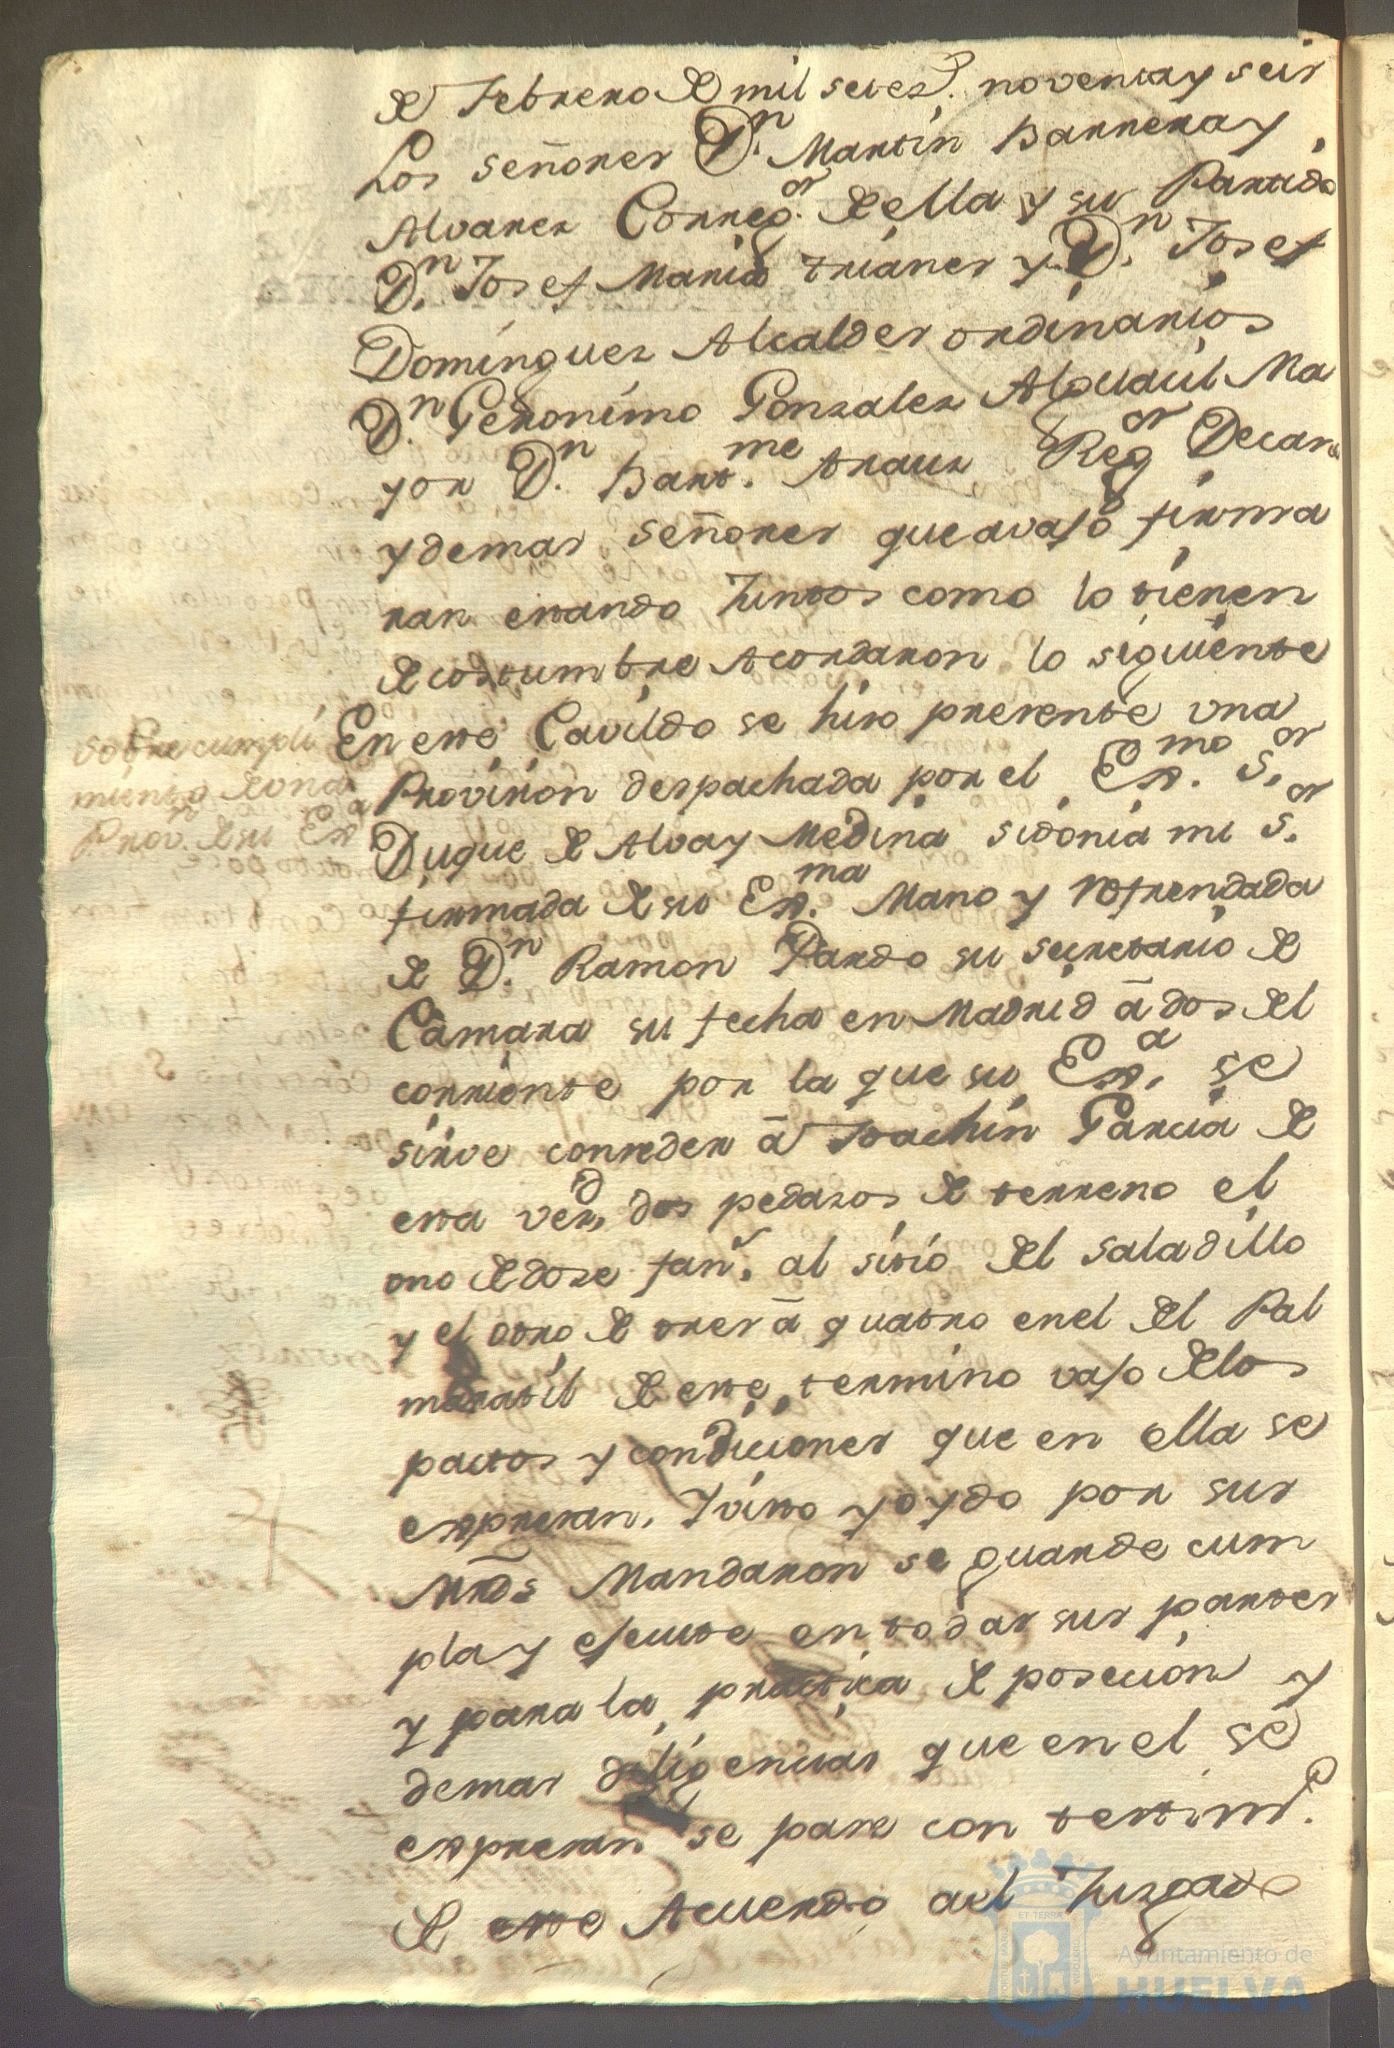 de Febrero de mil setez.^s noventa y seis
Los señores D.^n Martin Barrera y
Alvarez Correg.^or de ella y su Partido
D.^n Josef Maria trianes y D.^n Josef
Dominguez Alcaldes ordinarios
D.^n Geronimo Gonzalez Alguacil Ma
yor D.^n Bart.^me Arauz Reg^or Decano
y demas señores que avajo firma
ran estando Juntos como lo tienen
de costumbre Acordaron lo siguiente
sobre cumpli
miento de una
Prov.^n de su Ex^a
En este Cavildo se hiso presente una
Provision despachada por el Ex.^mo S.^or
Duque de Alva y Medina sidonia mi S.^or
firmada de su Ex.^ma Mano y refrendada
de D.^n Ramon Pardo su secretario de
Camara su fecha en Madrid à dos del
corriente por la que su Ex.^a se
sirve conseder à Joachin Garcia de
esta vez.^d dos pedazos de terreno el
uno de dose fan.^s al sitio del saladillo
y el otro de tres à quatro en el del Pal
maratil de este termino vajo de los
pactos y condiciones que en ella se
expresan, Y visto y oydo por sus
Mrds Mandaron se guarde cum
pla y ejecute en todas sus partes
y para la practica de posecion y
demas diligencias que en el se
expresan se pase con testim.^o
de este Acuerdo al Juzgado
ET TERRAE
Ayuntamiento de
HUELVA